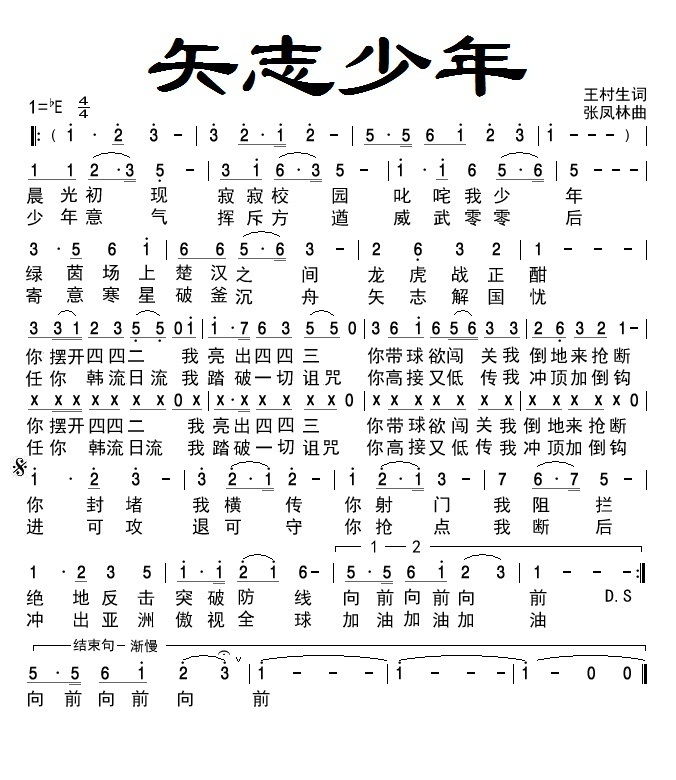 矢志少年
1=♭E 4/4
王村生词
张凤林曲
‖:( 1 · 2 3 - | 3 2 · 1 2 - | 5 · 5 6 1 2 3 | 1 - - - ) |
1 1 2 · 3 5 - | 3 1 6 · 3 5 - | 1 · 1 6 5 · 6 | 5 - - - |
晨光初 现 寂寂校 园 叱咤我少 年
少年意 气 挥斥方 遒 威武零零 后
3 · 5 6 1 | 6 6 5 · 6 3 - | 2 6 3 2 | 1 - - - |
绿 茵场上楚汉之 间 龙虎战正酣
寄 意寒星破釜沉 舟 矢志解国忧
3 31 23 5 5 01 | 1 · 7 63 55 0 | 36 1 656 33 | 2 63 2 1- |
你摆开四四二 我亮出四四三 你带球欲闯 关我倒地来抢断
任你 韩流日流我踏破一切诅咒 你高接又低 传我冲顶加倒钩
x xx xx xx 0x | x · x xx xx 0 | xx x xxx xx | x xx x x- |
你摆开四四二 我亮出四四三 你带球欲闯关我倒地来抢断
任你 韩流日流我踏破一切诅咒 你高接又低 传我冲顶加倒钩
1 · 2 3 - | 3 2 · 1 2 - | 1 2 · 1 3 - | 7 6 · 7 5 |
你 封堵 我横 传 你射 门 我 阻 拦
进 可攻 退可 守 你抢 点 我 断 后
1 2
1 · 2 3 5 | 1 · 1 2 1 6 - | 5 · 5 6 1 2 3 | 1 - - - :‖
绝 地反击突破防 线 向前向前向 前 D.S
冲 出亚洲傲视全 球 加油加油加 油
结束句－渐慢
5 · 5 6 1 2 3 ∨ | 1 - - - | 1 - - - | 1 - 0 0 ‖
向 前向前 向 前